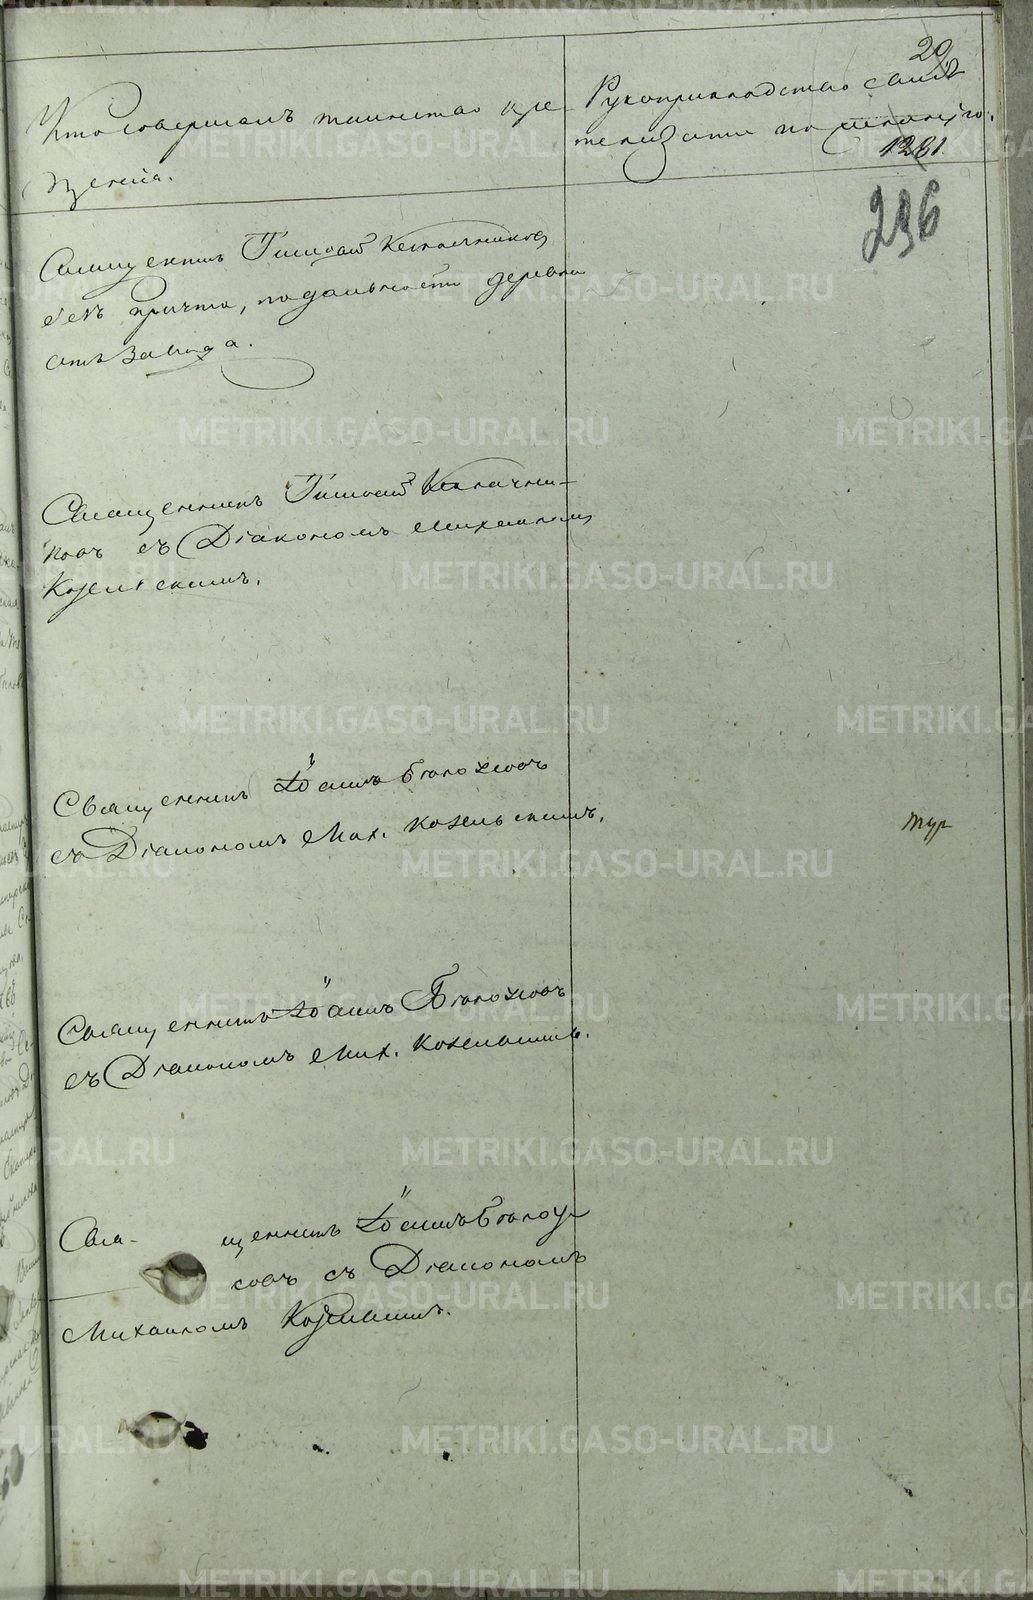 29
Кто совершалъ таинство кре
щенія.
Рукоприкладство свидѣ
телей записи по желанію.
1281
296
Священникъ Тимоѳей
безъ причта, по дальности деревни
отъ Завода.
Священникъ Тимоѳей
ковъ съ Діакономъ Михаиломъ
Козельскимъ.
Священникъ Іоаннъ Бѣлоусовъ
съ Діакономъ Мих. Козельскимъ.
тур
Священникъ Іоаннъ Бѣлоусовъ
съ Діакономъ Мих. Козельскимъ.
Свя- щенникъ Іоаннъ Бѣлоу
совъ съ Діакономъ
Михаиломъ Козельскимъ.
METRIKI.GASO-URAL.RU